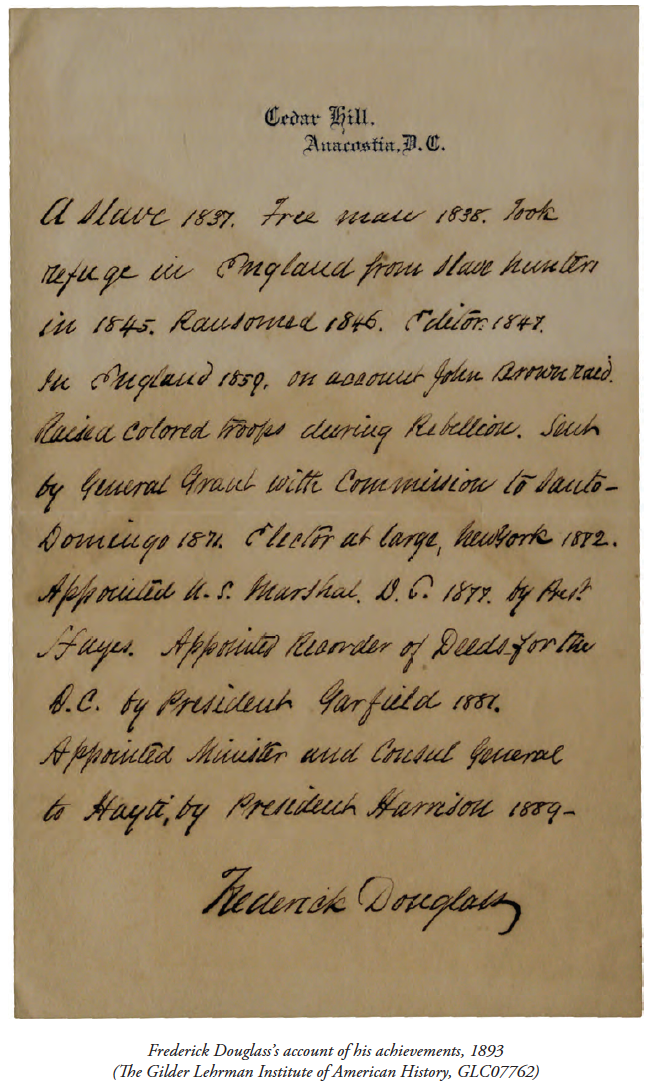 Cedar Hill.
Anacostia, D. C.
A slave 1837. Free man 1838. Took
refuge in England from slave hunters
in 1845. Ransomed 1846. Editor. 1847.
In England 1859. on account John Brown raid.
Raised Colored troops during Rebellion. Sent
by General Grant with Commission to Santo-
Domingo 1871. Elector at large, New York 1872.
Appointed U. S. Marshal. D. C. 1877. by Prest
Hayes. Appointed Recorder of Deeds for the
D.C. by President Garfield 1881.
Appointed Minister and Consul General
to Hayti, by President Harrison 1889-
Frederick Douglass
Frederick Douglass's account of his achievements, 1893
(The Gilder Lehrman Institute of American History, GLC07762)